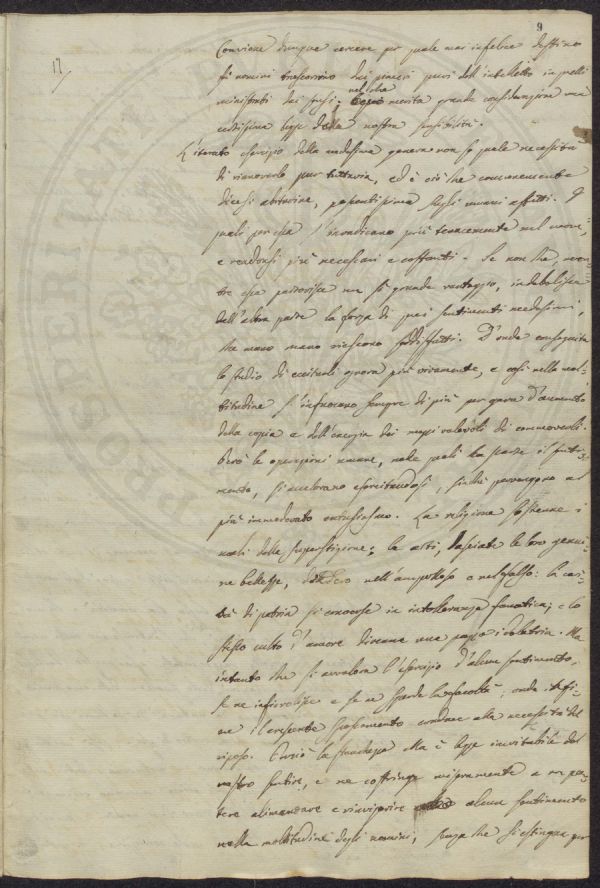 9
17
Conviene dunque cercare per quale mai infelice destino
gli uomini trascorrino dai piaceri puri dell'intelletto in quelli
ministrati dai sensi; nel che merita grande considerazione una
certissima legge della nostra sensibilità.
L'iterato esercizio della medesima genera non so quale necessità
di rinnovarlo pur tuttavia, ed è ciò che comunemente
dicesi abitudine, possentissima sugli umani affetti. I
quali per essa si tenacemente nel cuore,
e rendonsi più necessari e costanti. Se non che, men-
tre essa partorisce un sì grande vantaggio, indebolisce
dall'altra parte la forza di quei sentimenti medesimi,
che mano mano riescono soddisfatti. D'onde conseguita
lo studio di eccitarli ognora più vivamente, e così nella mol-
titudine s'infuocano sempre di più per gara d'aumento
della copia e dell'energia dei mezzi valevoli di commoverli.
Però le operazioni umane, nelle quali ha parte il senti-
mento, si accelerano esercitandosi, finchè pervengono al
più immoderato entusiasmo. La religione sostenne i
mali della superstizione; le arti, lasciate le loro genui-
ne bellezze, nell'ampolloso e nel falso: la cari-
tà di patria si converse in intolleranza fanatica; e lo
stesso culto d'amore divenne una pazza idolatria. Ma
intanto che si avvalora l'esercizio d'alcun sentimento,
se ne infievolisce e se ne sperde la facoltà, onde infi-
ne il crescente spossamento conduce alla necessità del
riposo. Perciò la stanchezza ella è legge inevitabile del
nostro sentire, e ne costringe miseramente a non po-
tere alimentare e rinvigorire alcun sentimento
nella moltitudine degli uomini, senza che si estingua per